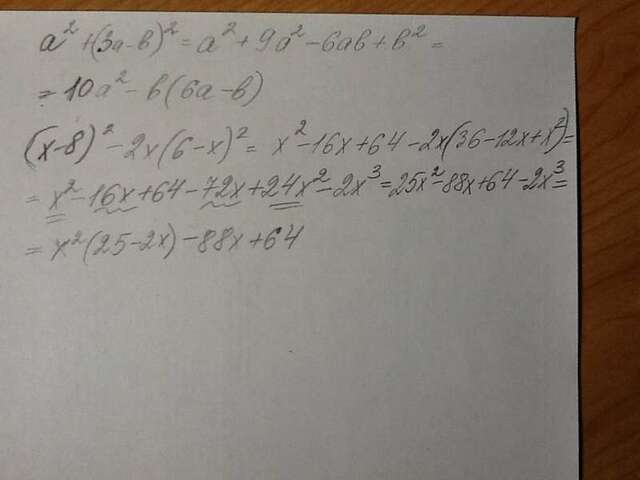 a² + (3a-b)² = a² + 9a² - 6ab + b² =
= 10a² - b(6a-b)
(x-8)² - 2x(6-x)² = x² - 16x + 64 - 2x(36 - 12x + x²) =
= x² - 16x + 64 - 72x + 24x² - 2x³ = 25x² - 88x + 64 - 2x³ =
= x²(25-2x) - 88x + 64